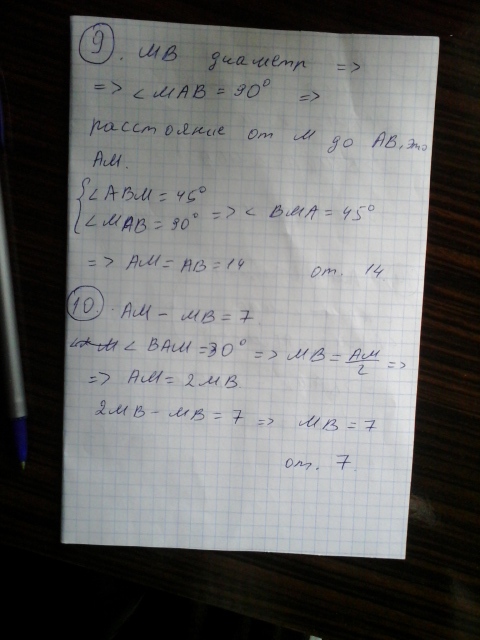 9. MB диаметр =>
=> ∠MAB = 90° =>
расстояние от M до AB, это
AM.
{∠ABM = 45°
∠MAB = 90° => ∠ BMA = 45°
=> AM = AB = 14 от. 14
10. AM - MB = 7
∠ BAM = 30° => MB = AM/2 =>
=> AM = 2MB
2MB - MB = 7 => MB = 7
от. 7.